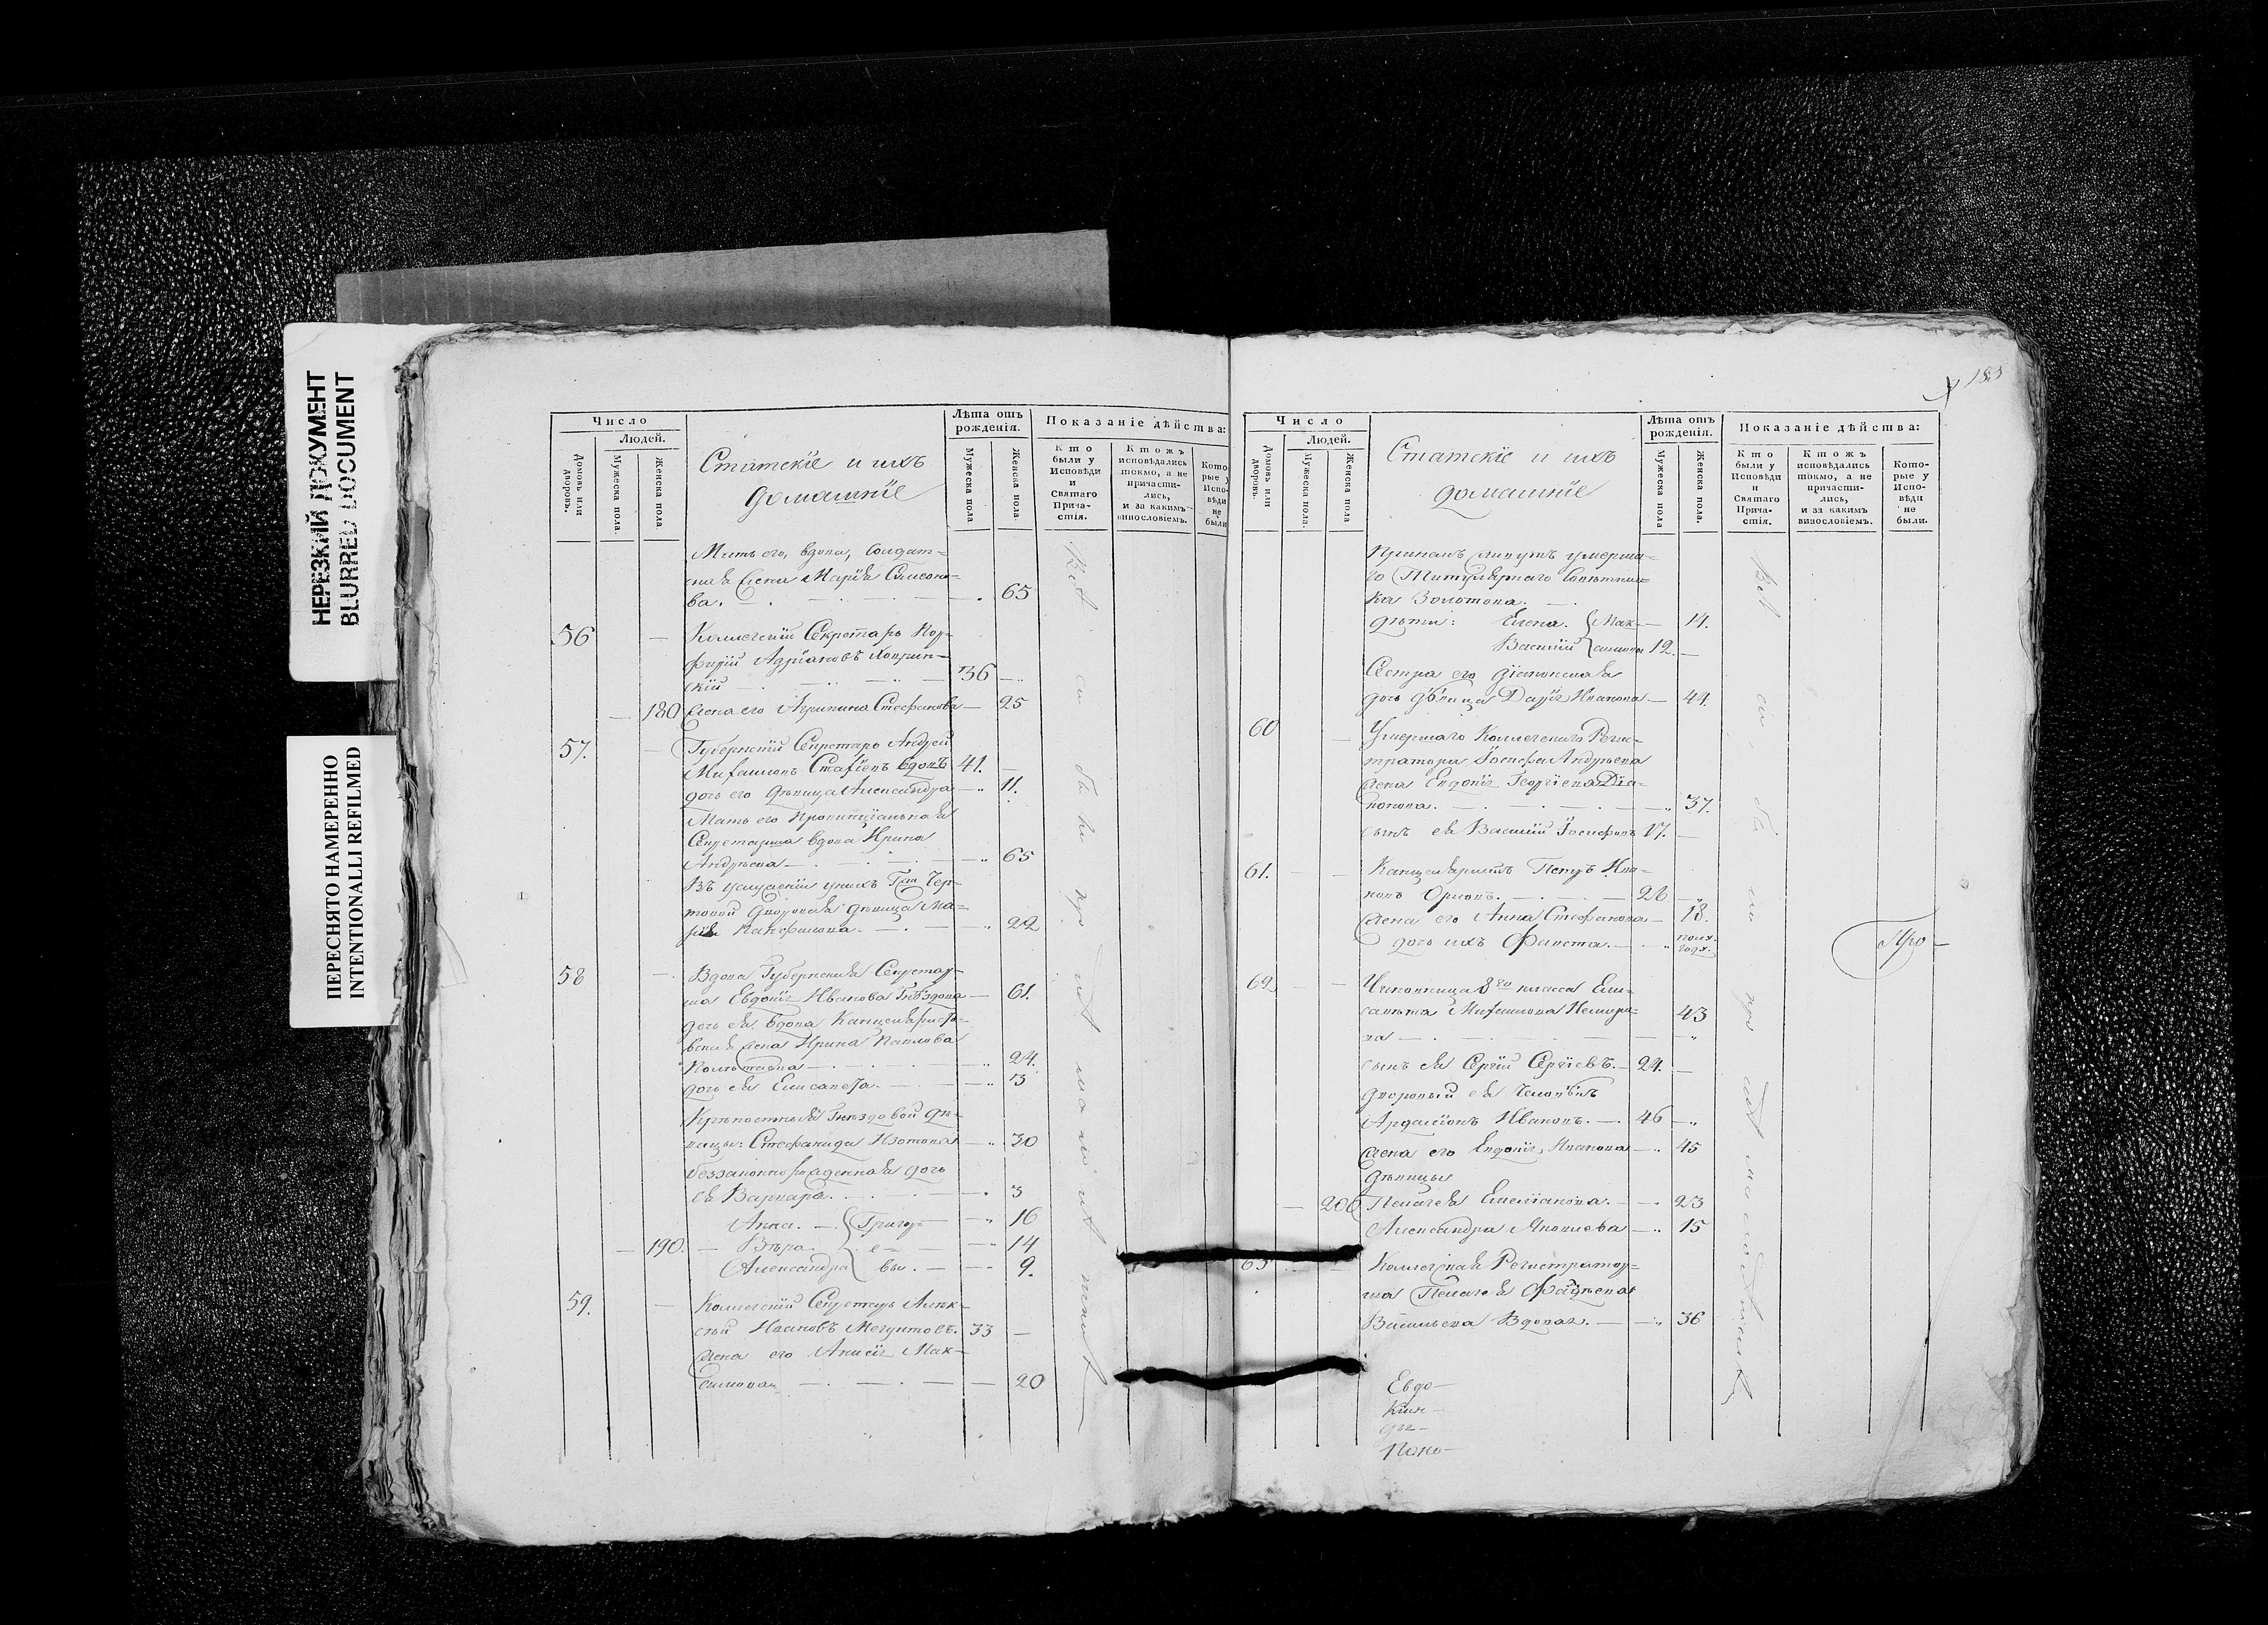 НЕРЕЗКИЙ ДОКУМЕНТ
BLURRED DOCUMENT
ПЕРЕСНЯТО НАМЕРЕННО
INTENTIONALLI REFILMED
Число
Людей.
Домовъ или дворовъ.
Мужеска пола.
Женска пола
Статскїе и ихъ
домашнїе
Лѣта отъ рожденїя.
Мужеска пола
Женска пола.
Показанїе дѣйства:
Кто были у Исповѣди и Святаго Прича-стїя.
Ктожъ исповѣдались токмо, а не причасти-лись, и за какимъ винословїемъ.
Кото-рые у Испо-вѣди не были
Мать его, вдова, Солдат=
ская жена Марїя Симеоно=
ва. 65
56 Коллегскїй Секретарь Пор=
фирїй Адрїановъ
скїй 36
180 жена его Агрипина Стефанова 25
57. Губернскїй Секретарь Андрей
Михаиловъ вдовъ 41.
дочь его дѣвица Александра 11.
Мать его Провинцїальная
Секретарша вдова Ирина
Андреева 65
Въ услуженїи у нихъ Гжи Чер=
товой дворовая дѣвица Ма=
рїя Панфилова. 22
58 Вдова Губернская Секретар=
ша Евдокїя Иванова Гнѣздова 61.
дочь ея вдова Канцеляристъ=
вская жена Ирина Павлова
24.
дочь ея Елисавета. 3
Крѣпостныя Гнѣздовой дѣ=
вицы: Стефанида Изотова 30
беззаконнорожденная дочь
ея Варвара. 3
Анна. Григор= 16
190. Вѣра. е= 14
Александра вы. 9.
59. Коллегскїй Секретарь Алек=
сѣй Ивановъ 33
жена его Анисїя Мак=
симова 20
183
Число
Людей.
Домовъ или дворовъ.
Мужеска пола.
Женска пола
Статскїе и ихъ
домашнїе
Лѣта отъ рожденїя.
Мужеска пола
Женска пола.
Показанїе дѣйства:
Кто были у Исповѣди и Святаго Прича-стїя.
Ктожъ исповѣдались токмо, а не причасти-лись, и за какимъ винословїемъ.
Кото-рые у Испо-вѣди не были.
умерша=
го Титулярнаго Совѣтни=
ка Золотова.
дѣти: Елена. Мак= 14.
Василїй симовы 12.
Сестра его дїаконская
дочь дѣвица Дарїя Иванова 44.
60 Умершаго Коллегскаго Реги=
стратора Іосифа Андреева
жена Евдокїя Георгїева Дїа=
конова. 37.
сынъ ея Василїй Іосифовъ 17.
61. Канцеляристъ Петръ Ива=
новъ Орловъ. 26
жена его Анна Стефанова 18.
дочь ихъ Фавста. полъ года.
62 Чиновница 8го класса Ели=
савета Михаилова
43
сынъ ея Сергїй Сергїевъ. 24.
дворовый ея человѣкъ
Ардалїонъ Ивановъ. 46
жена его Евдокїя Иванова 45
дѣвицы
206 Пелагея Емелїанова. 23
Александра Яковлева 15
63 Коллегская Регистратор=
ша Пелагея Фадѣева
Васильева вдова. 36
Евдо=
Ким=
Поко=
Про=